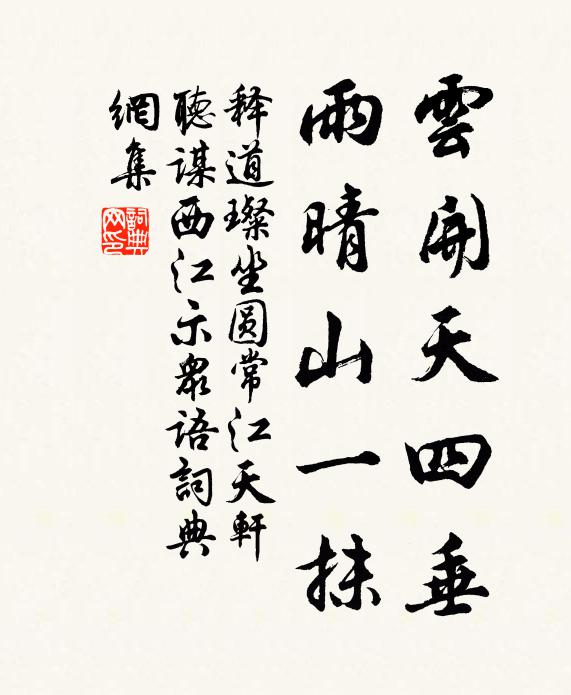 雲開天四垂
雨晴山一抹
释道璨坐圆常江天軒
聴謀西江示眾語詞典
網集
詞典网印